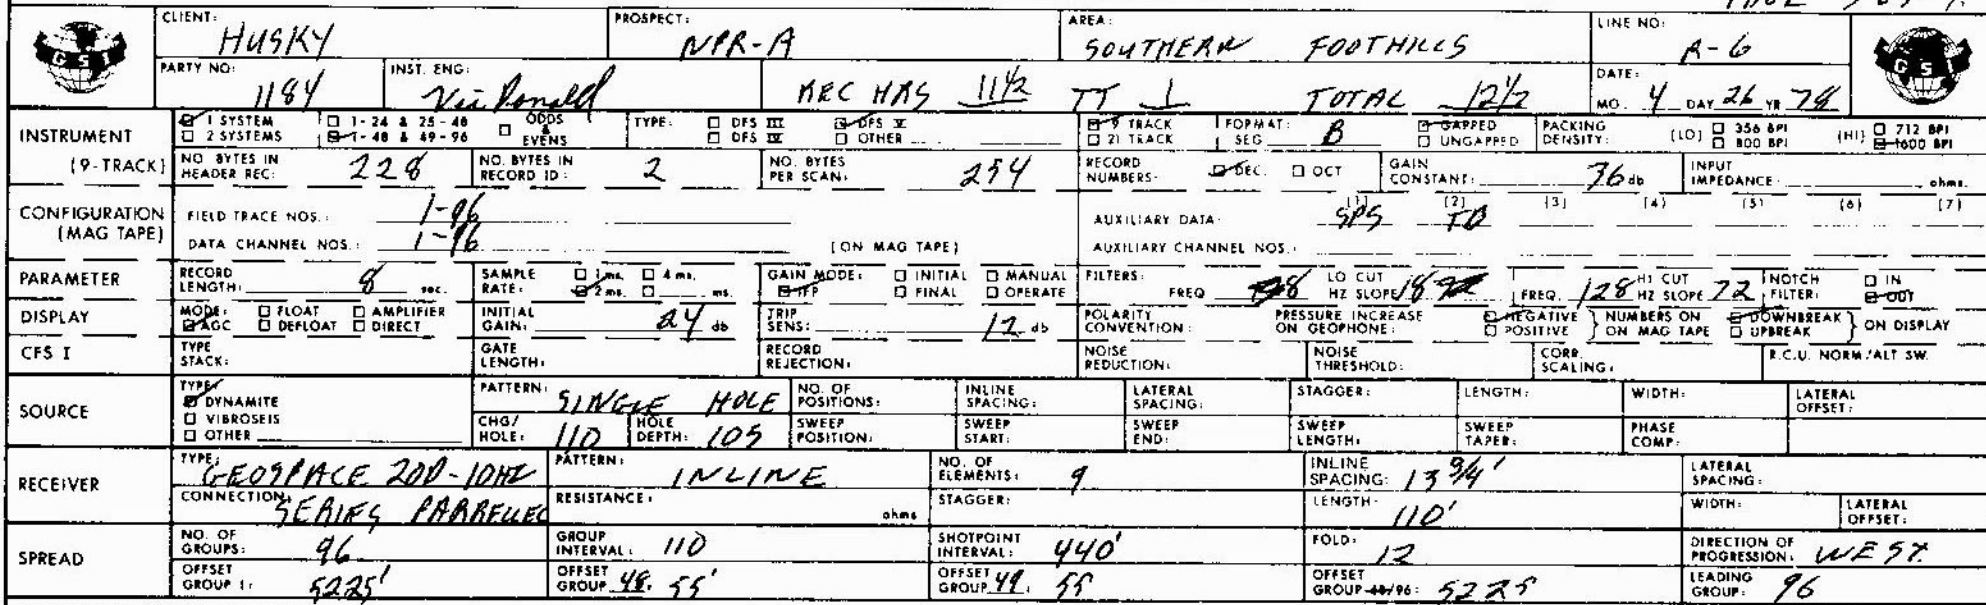 CLIENT: HUSKY PROSPECT: NPR-A AREA: SOUTHERN FOOTHILLS LINE NO: R-6
GSI
PARTY NO: 1184 INST. ENG: Vic Donald REC HRS 11 1/2 TT 1 TOTAL 12 1/2 DATE: MO. 4 DAY 26 YR 78
GSI
INSTRUMENT 1 SYSTEM 1-24 & 25-48 ODDS & EVENS TYPE: DFS III DFS V 9 TRACK FORMAT: GAPPED PACKING (LO) 356 BPI (HI) 712 BPI
2 SYSTEMS 1-48 & 49-96 DFS IV OTHER 21 TRACK SEG B UNGAPPED DENSITY: 800 BPI 1600 BPI
(9-TRACK) NO. BYTES IN HEADER REC: 228 NO. BYTES IN RECORD ID: 2 NO. BYTES PER SCAN: 254 RECORD NUMBERS: DEC. OCT GAIN CONSTANT: 36 db INPUT IMPEDANCE ohms.
CONFIGURATION FIELD TRACE NOS.: 1-96 AUXILIARY DATA: (1) SPS (2) TB (3) (4) (5) (6) (7)
(MAG TAPE) DATA CHANNEL NOS.: 1-96 (ON MAG TAPE) AUXILIARY CHANNEL NOS.:
PARAMETER RECORD LENGTH: 8 sec. SAMPLE RATE: 1 ms. 4 ms. 2 ms. ms. GAIN MODE: INITIAL MANUAL IFP FINAL OPERATE FILTERS: FREQ 8 LO CUT HZ SLOPE 18 FREQ. 128 HI CUT HZ SLOPE 72 NOTCH FILTER: IN OUT
DISPLAY MODE: FLOAT AMPLIFIER AGC DEFLOAT DIRECT INITIAL GAIN: 24 db TRIP SENS: 12 db POLARITY CONVENTION: PRESSURE INCREASE ON GEOPHONE: NEGATIVE POSITIVE NUMBERS ON MAG TAPE DOWNBREAK UPBREAK ON DISPLAY
CFS I TYPE STACK: GATE LENGTH: RECORD REJECTION: NOISE REDUCTION: NOISE THRESHOLD: CORR. SCALING: R.C.U. NORM/ALT SW.
SOURCE TYPE: DYNAMITE VIBROSEIS OTHER PATTERN: SINGLE HOLE NO. OF POSITIONS: INLINE SPACING: LATERAL SPACING: STAGGER: LENGTH: WIDTH: LATERAL OFFSET:
CHG/HOLE: 110 HOLE DEPTH: 105 SWEEP POSITION: SWEEP START: SWEEP END: SWEEP LENGTH: SWEEP TAPER: PHASE COMP:
RECEIVER TYPE: GEOSPACE 20D-10HZ PATTERN: INLINE NO. OF ELEMENTS: 9 INLINE SPACING: 13 3/4' LATERAL SPACING:
CONNECTION: SERIES PARRELLEC RESISTANCE: ohms STAGGER: LENGTH: 110' WIDTH: LATERAL OFFSET:
SPREAD NO. OF GROUPS: 96 GROUP INTERVAL: 110 SHOTPOINT INTERVAL: 440' FOLD: 12 DIRECTION OF PROGRESSION: WEST
OFFSET GROUP 1: 5225' OFFSET GROUP 48: 55' OFFSET GROUP 49: 55 OFFSET GROUP 48/96: 5225 LEADING GROUP: 96